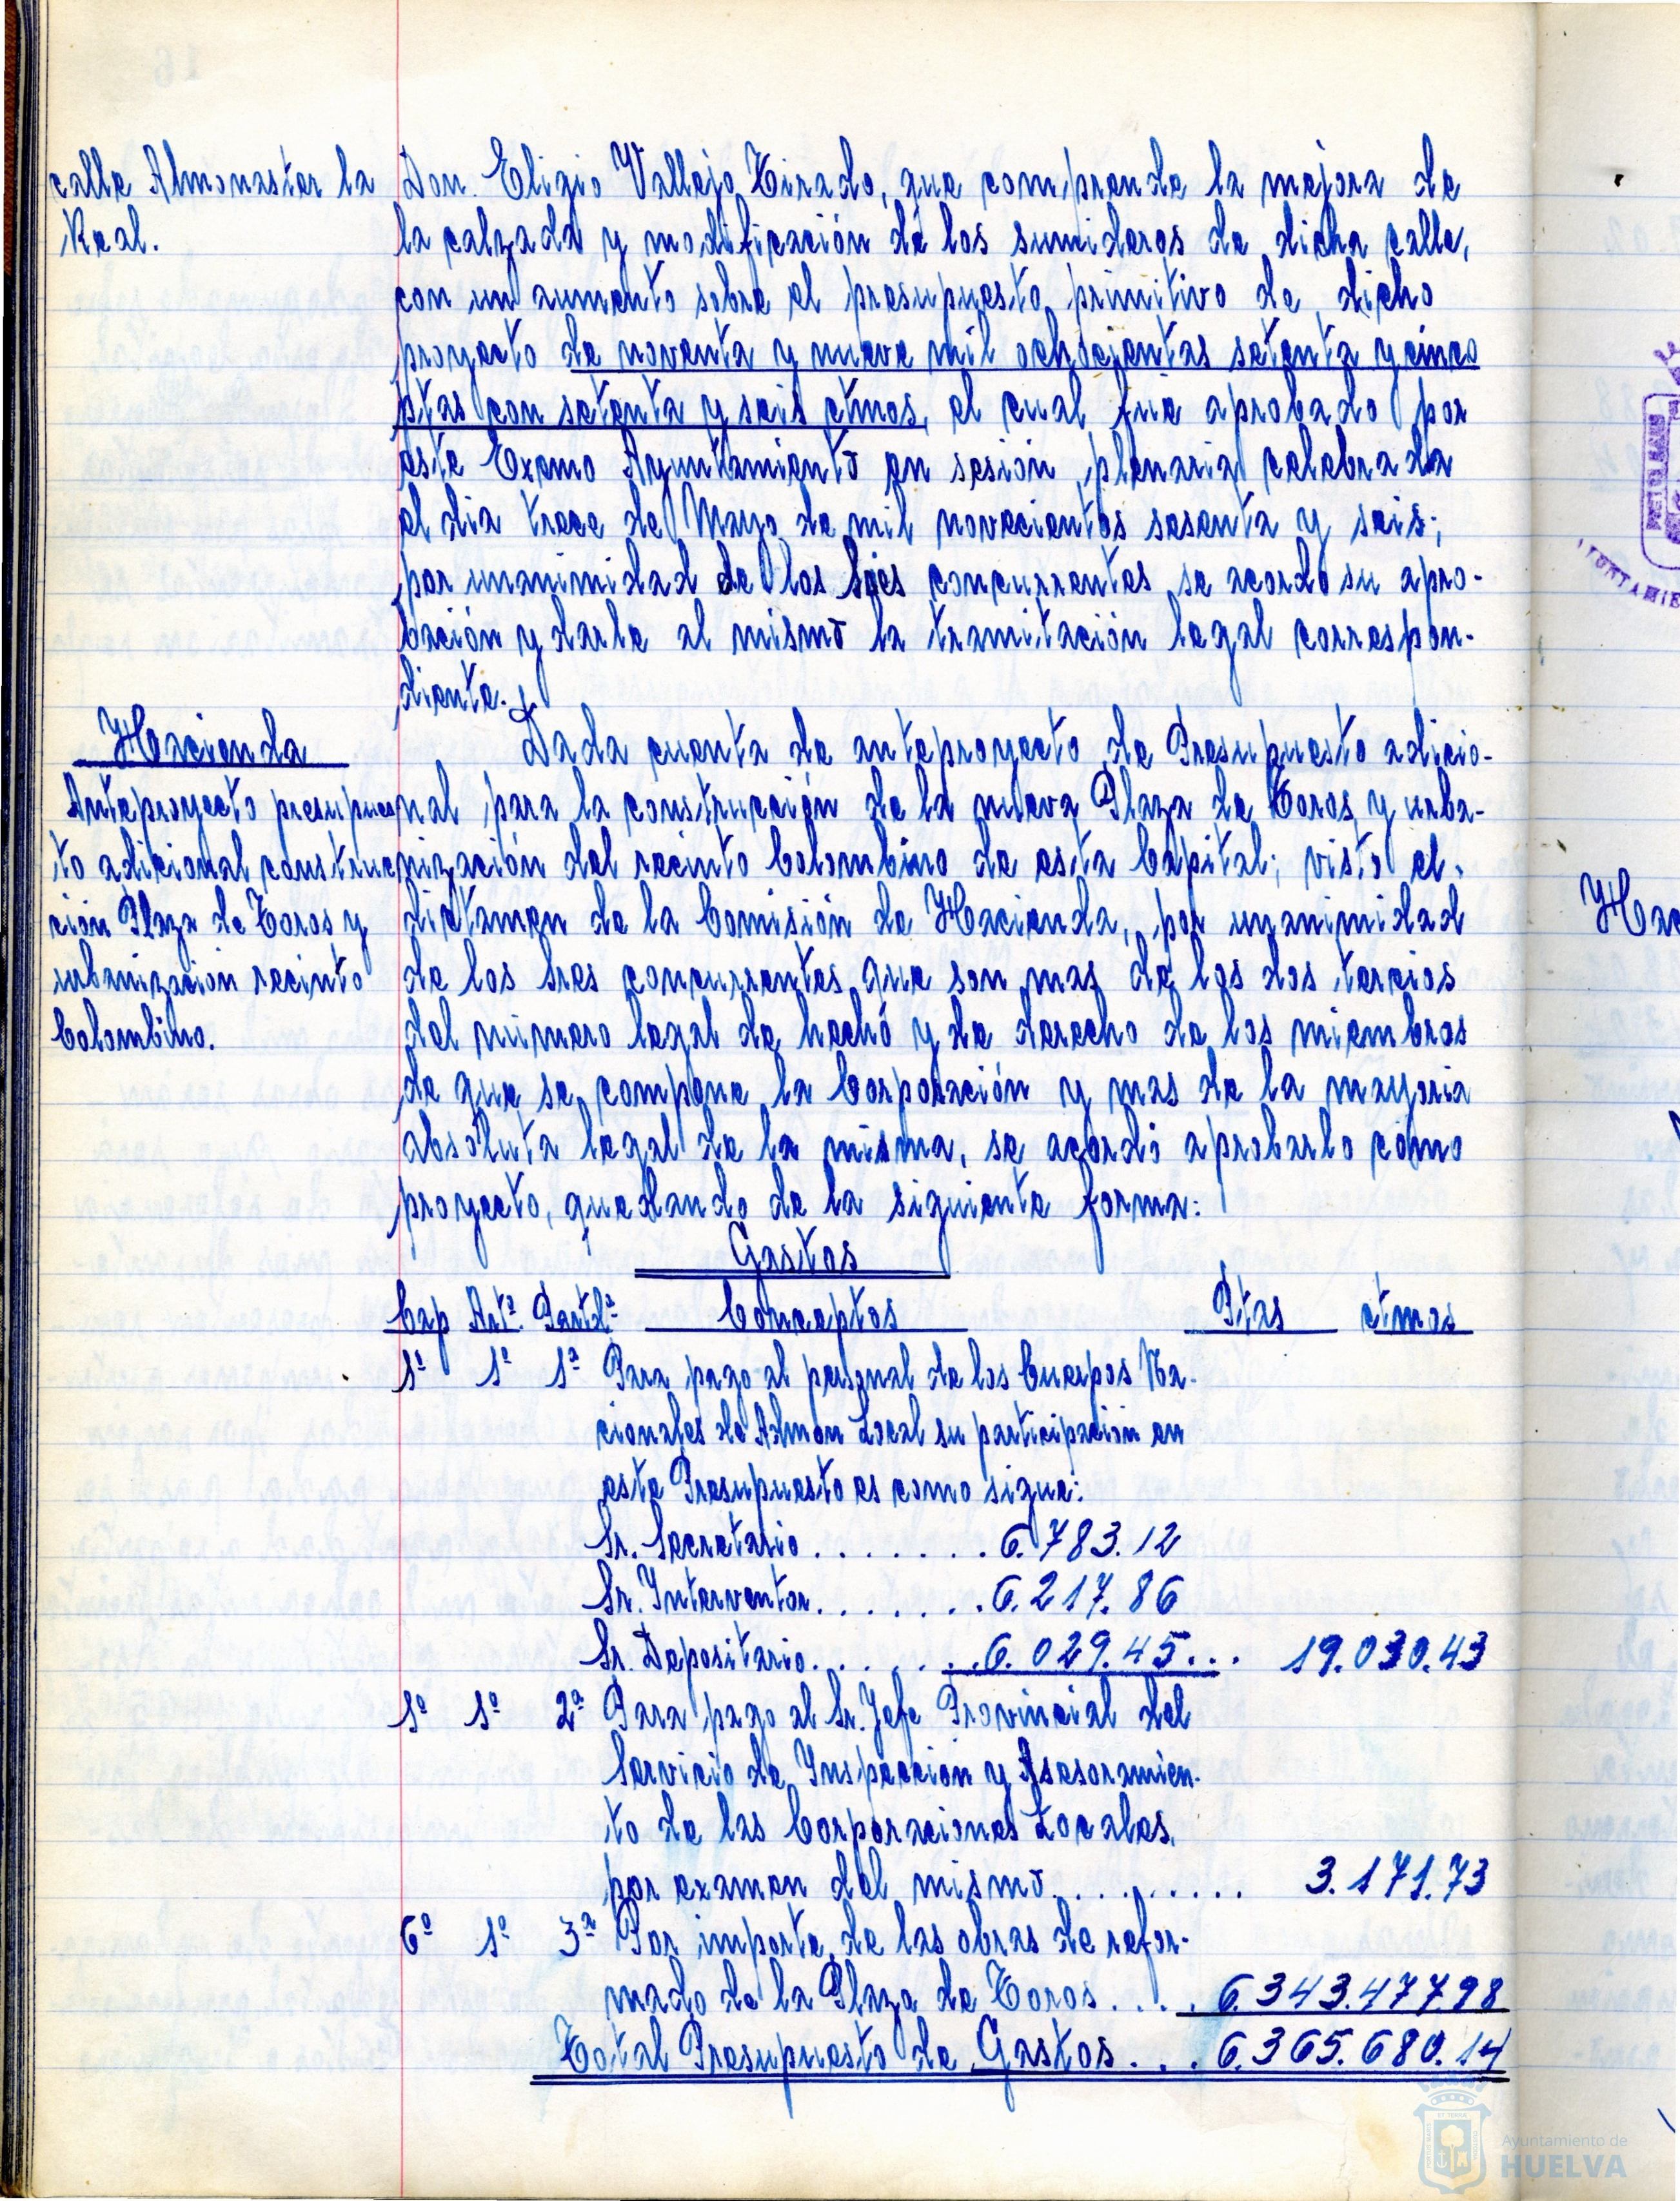 calle Almonaster la
Real.
Don Eligio Vallejo Tirado, que comprende la mejora de
la calzada y modificación de los sumideros de dicha calle,
con un aumento sobre el presupuesto primitivo de dicho
proyecto de noventa y nueve mil ochocientas setenta y cinco
ptas con setenta y seis ctmos, el cual fue aprobado por
este Excmo Ayuntamiento en sesión plenaria celebrada
el dia trece de Mayo de mil novecientos sesenta y seis;
por unanimidad de los Sres concurrentes se acordo su apro-
bación y darle al mismo la tramitación legal correspon-
diente.
Hacienda
Anteproyecto presupues
to adicional construc
ción Plaza de Toros y
urbanización recinto
Colombino.
Dada cuenta de anteproyecto de Presupuesto adicio-
nal para la construcción de la nueva Plaza de Toros y urba-
nización del recinto Colombino de esta Capital; visto el
dictamen de la Comisión de Hacienda, por unanimidad
de los Sres concurrentes que son mas de los dos tercios
del número legal de hechó y de derecho de los miembros
de que se compone la Corporación y mas de la mayoria
absoluta legal de la misma, se acordó aprobarlo como
proyecto, quedando de la siguiente forma:
Gastos
Cap Artº. Partdª. Conceptos Ptas ctmos
1º 1º 1ª Para pago al personal de los Cuerpos Na-
cionales de Admon Local su participación en
este Presupuesto es como sigue:
Sr. Secretario . . . . . . . 6.783.12
Sr. Interventor. . . . . . . 6.217.86
Sr. Depositario. . . . . . . 6.029.45... 19.030.43
1º 1º 2ª Para pago al Sr. Jefe Provincial del
Servicio de Inspección y Asesoramien-
to de las Corporaciones Locales,
por examen del mismo. . . . . . . . . 3.171.73
6º 1º 3ª Por importe de las obras de refor-
mado de la Plaza de Toros. . . . 6.343.477.98
Total Presupuesto de Gastos. . . 6.365.680.14
Hac
AYUNTAMIE
Ayuntamiento de
HUELVA